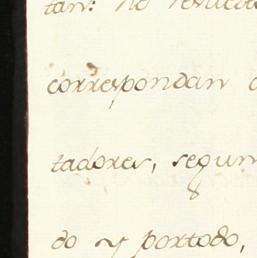 tan: no
correspondan
tadores, segun
do y portodo,